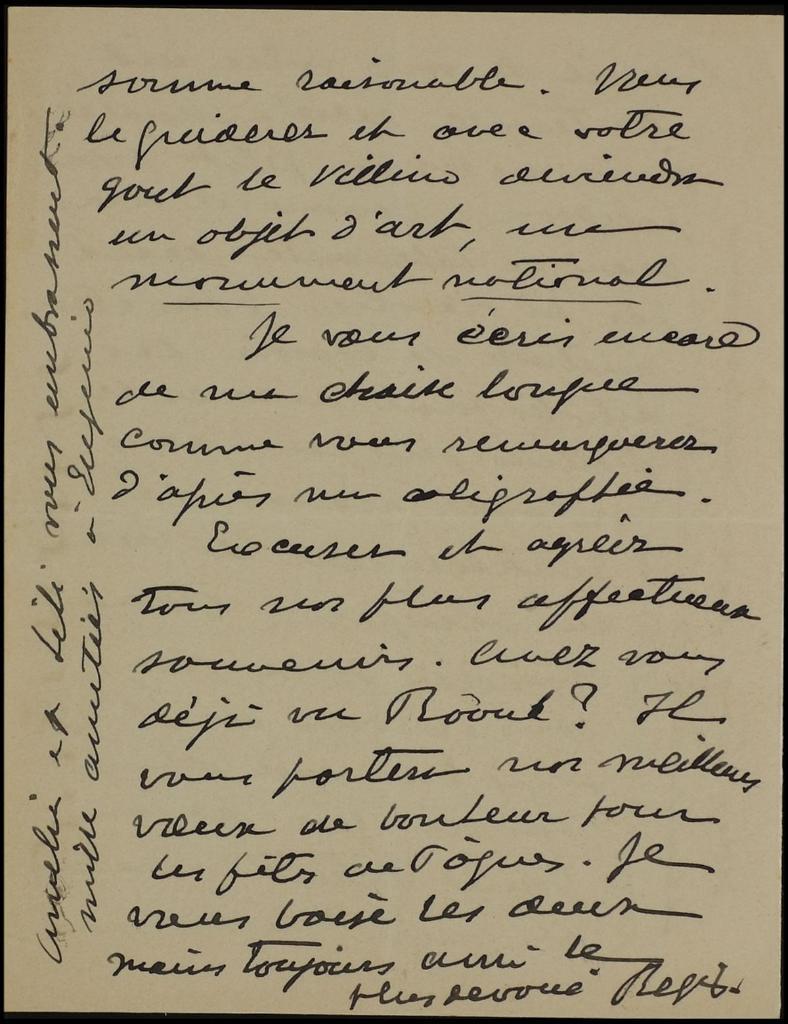 somme raisonable. Vous
le guiderez et avec votre
gout le Villino deviendra
un objet d'art, un
monument national.
Je vous écris encore
de ma chaise longue
comme vous remarquerez
d'après ma caligraffie.
Excusez et agréez
tous nos plus affectueux
souvenirs. Avez vous
déjà vu Raoul? Il
vous portera nos meilleurs
vœux de bonheur pour
les fêtes de Pâques. Je
vous baise les deux
mains toujours ami le
plus devoué Regis.
Amélie et Lili vous embrassent
mille amitiés à Eugenio